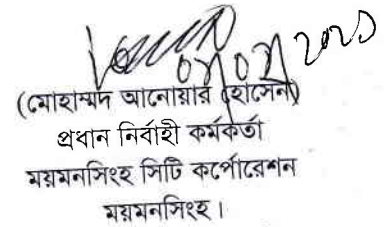 (মোহাম্মদ আনোয়ার হোসেন)
প্রধান নির্বাহী কর্মকর্তা
ময়মনসিংহ সিটি কর্পোরেশন
ময়মনসিংহ।